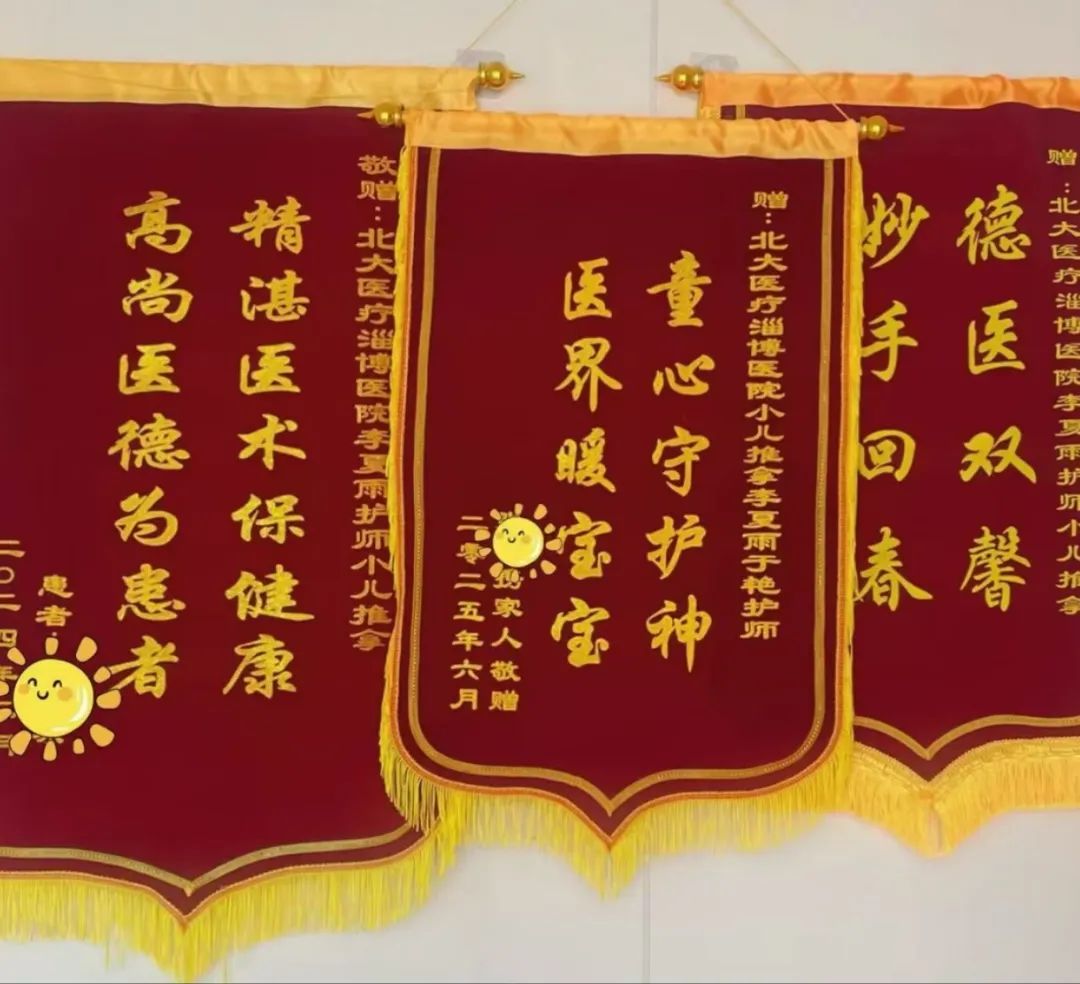 敬赠：北大医疗淄博医院李夏雨护师小儿推拿
精湛医术保健康
高尚医德为患者
患者：
二〇二四年
赠：北大医疗淄博医院小儿推拿李夏雨于艳护师
童心守护神
医界暖宝宝
家人敬赠
二零二五年六月
赠：北大医疗淄博医院李夏雨护师小儿推拿
德医双馨
妙手回春